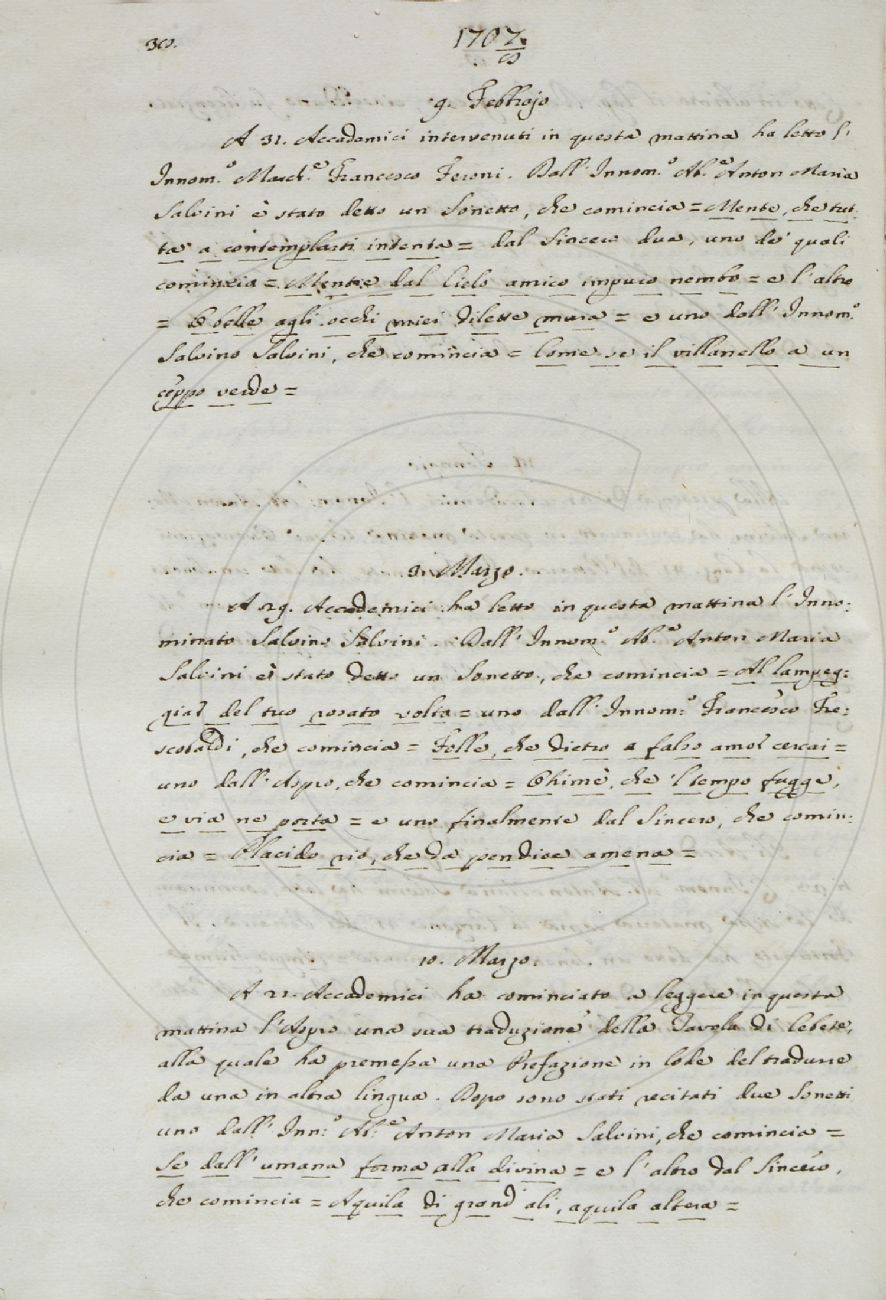 30.
1707/8
9. Febbrajo
A 31. Accademici intervenuti in questa mattina ha letto l'
Innom.º March.e Francesco Feroni. Dall' Innom.º Ab.e Anton Maria
Salvini è stato detto un Sonetto, che comincia = Mente, che tut-
ta a contemplarti intenta = dal Sincero due, uno de' quali
comincia = Mentre dal Cielo amico impuro nembo = e l'altro
= O belle agli occhi miei dilette mura = e uno dall' Innom.º
Salvino Salvini, che comincia = Come se il villanello a un
ceppo verde =
Marzo.
A 29. Accademici ha letto in questa mattina l'Inno:
minato Salvino Salvini. Dall' Innom.º Ab.e Anton Maria
Salvini è stato detto un Sonetto, che comincia = Al lampeg:
giar del tuo rosato volto = uno dall' Innom.º Francesco Fre:
scobaldi, che comincia = Folle, che dietro a falso amor cercai =
uno dall' Aspro, che comincia = Ohimè, che 'l tempo fugge,
e via ne porta = e uno finalmente dal Sincero, che comin:
cia = Placido rio, che da pendice amena =
10. Marzo.
A 21. Accademici ha cominciato a leggere in questa
mattina l'Aspro una sua traduzione della Tavola di Cebete,
alla quale ha premessa una Prefazione in lode del tradurre
da una in altra lingua. Dopo sono stati recitati due Sonetti
uno dall' Inn.º Ab.e Anton Maria Salvini, che comincia =
Se dall' umana forma alla divina = e l'altro dal Sincero,
che comincia = Aquila di grand' ali, aquila altera =